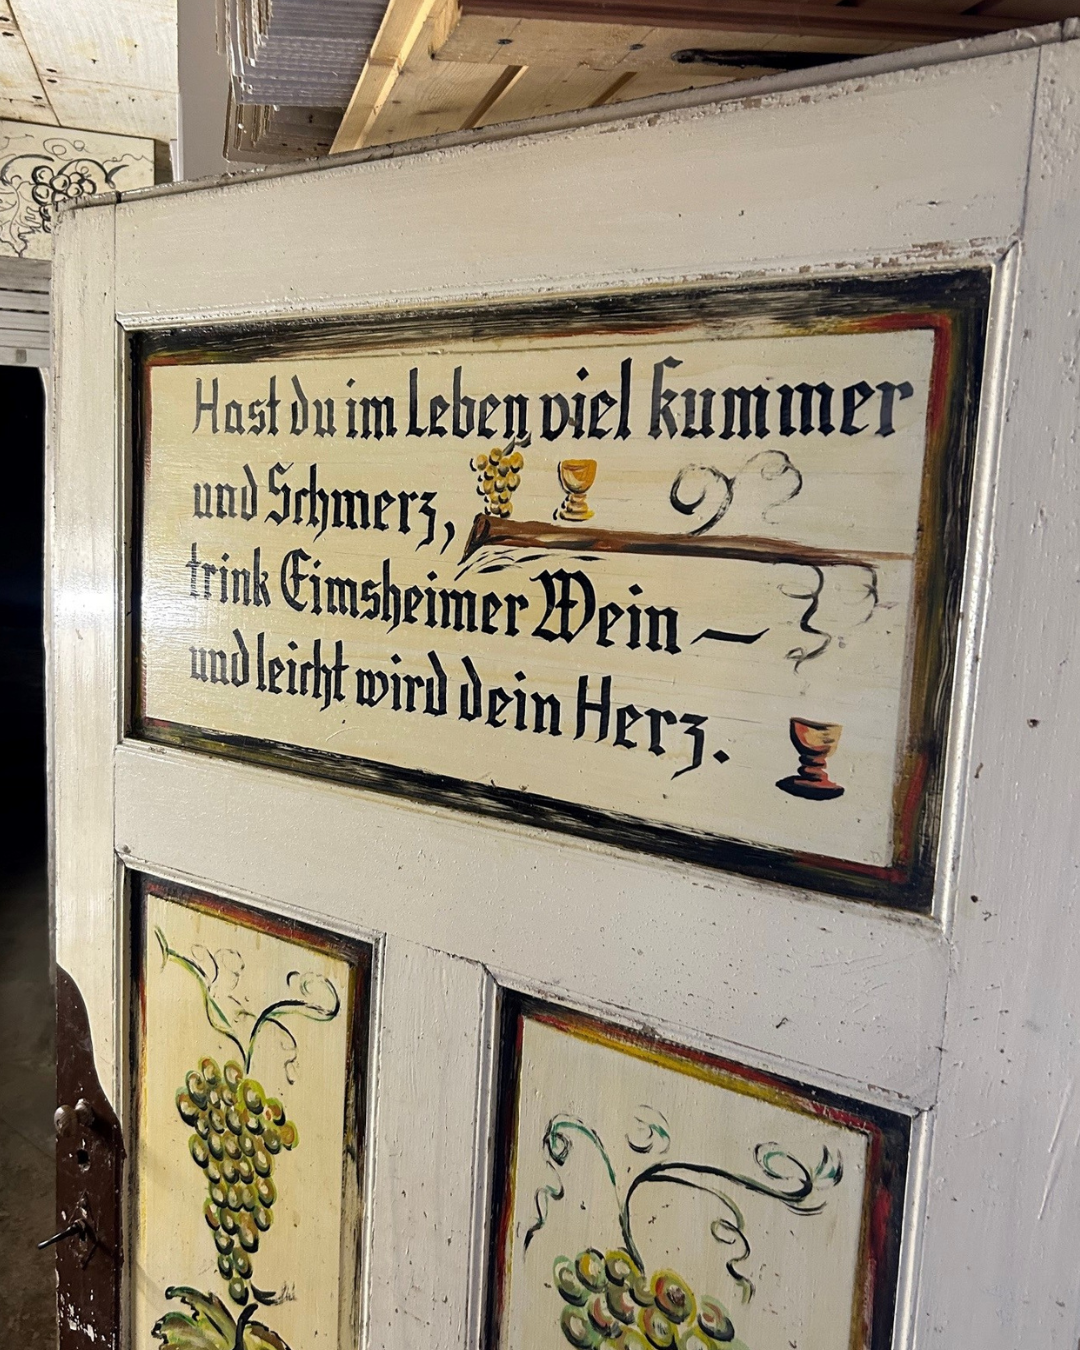 Hast du im Leben viel kummer
und Schmerz,
trink Eimsheimer Wein —
und leicht wird dein Herz.